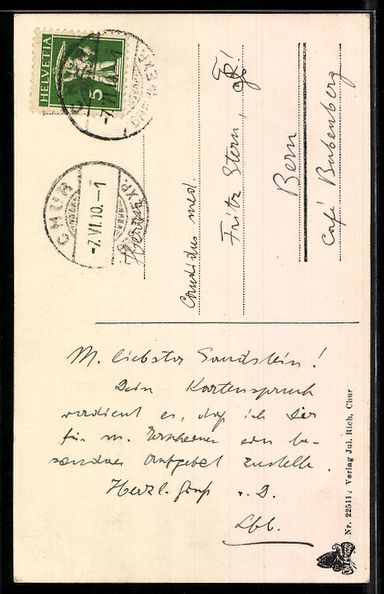 HELVETIA
5
CHUR
-7.VI.10.-1
Herrn
Candidus med.
Fritz Stern,
Bern
Café Bubenberg
M. liebster Sandstein!
Dein Kartenspruch
verdient es, daß ich Dir
für m. ein be-
sonderes Aufgebot zustelle.
Herzl. Gruß v. D.
Nr. 22511. Verlag Jul. Rich, Chur